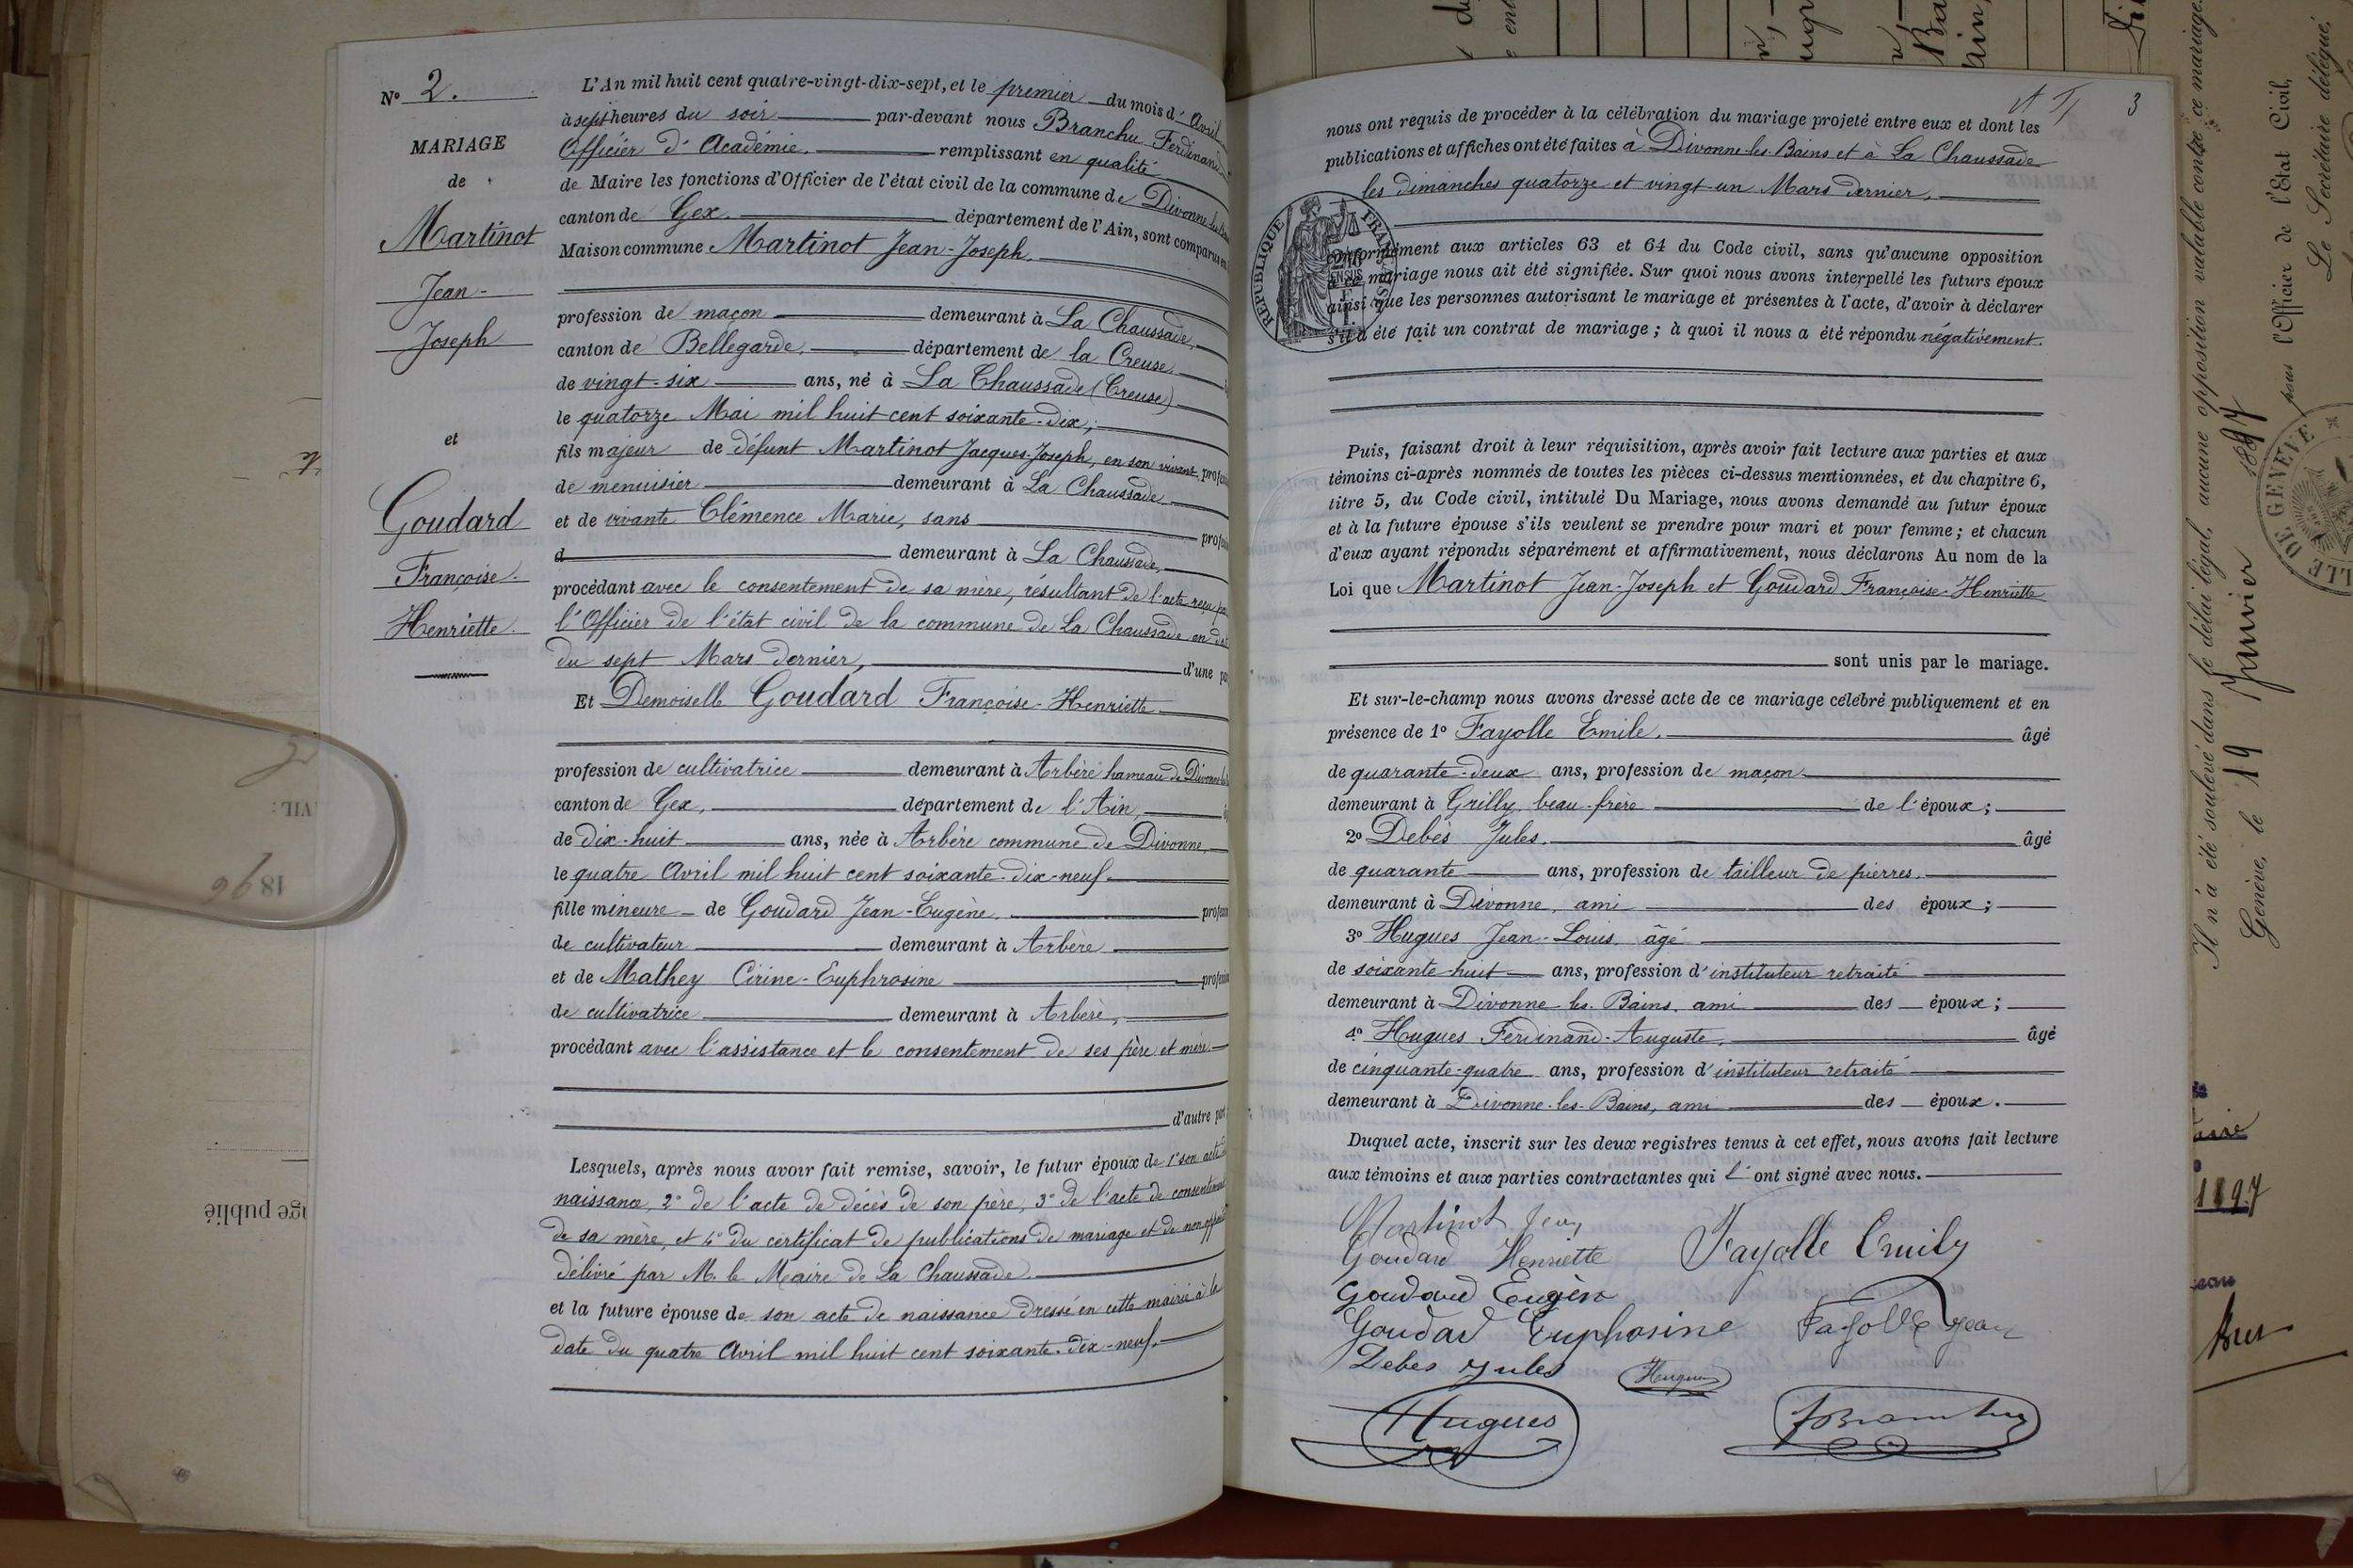 N° 2.
MARIAGE
de
Martinot
Jean-
Joseph
et
Goudard
Françoise-
Henriette.
L'An mil huit cent quatre-vingt-dix-sept, et le premier du mois d'Avril
à sept heures du soir par-devant nous Branchu Ferdinand
Officier d'Académie. remplissant en qualité
de Maire les fonctions d'Officier de l'état civil de la commune de Divonne-les-Bains
canton de Gex. département de l'Ain, sont comparus en
Maison commune Martinot Jean-Joseph.
profession de maçon demeurant à La Chaussade,
canton de Bellegarde, département de la Creuse,
de vingt-six ans, né à La Chaussade (Creuse)
le quatorze Mai mil huit cent soixante-dix;
fils majeur de défunt Martinot Jacques-Joseph, en son vivant, profession
de menuisier demeurant à La Chaussade
et de vivante Clémence Marie, sans profession
d demeurant à La Chaussade,
procédant avec le consentement de sa mère, résultant de l'acte reçu par
l'Officier de l'état civil de la commune de La Chaussade en date
du sept Mars dernier, d'une part
Et Demoiselle Goudard Françoise-Henriette
profession de cultivatrice demeurant à Arbère hameau de Divonne
canton de Gex, département de l'Ain,
de dix-huit ans, née à Arbère commune de Divonne,
le quatre Avril mil huit cent soixante-dix-neuf.
fille mineure de Goudard Jean-Eugène. profession
de cultivateur demeurant à Arbère
et de Mathey Cirine-Euphrosine profession
de cultivatrice demeurant à Arbère,
procédant avec l'assistance et le consentement de ses père et mère
d'autre part
Lesquels, après nous avoir fait remise, savoir, le futur époux de 1° son acte de
naissance, 2° de l'acte de décès de son père, 3° de l'acte de consentement
de sa mère, et 4° du certificat de publications de mariage et de non opposition
délivré par M. le Maire de La Chaussade.
et la future épouse de son acte de naissance dressé en cette mairie à la
date du quatre Avril mil huit cent soixante-dix-neuf.
3
nous ont requis de procéder à la célébration du mariage projeté entre eux et dont les
publications et affiches ont été faites à Divonne-les-Bains et à La Chaussade
les dimanches quatorze et vingt-un Mars dernier,
RÉPUBLIQUE FRANÇAISE
conformément aux articles 63 et 64 du Code civil, sans qu'aucune opposition
à ce mariage nous ait été signifiée. Sur quoi nous avons interpellé les futurs époux
ainsi que les personnes autorisant le mariage et présentes à l'acte, d'avoir à déclarer
s'il a été fait un contrat de mariage; à quoi il nous a été répondu négativement.
Puis, faisant droit à leur réquisition, après avoir fait lecture aux parties et aux
témoins ci-après nommés de toutes les pièces ci-dessus mentionnées, et du chapitre 6,
titre 5, du Code civil, intitulé Du Mariage, nous avons demandé au futur époux
et à la future épouse s'ils veulent se prendre pour mari et pour femme; et chacun
d'eux ayant répondu séparément et affirmativement, nous déclarons Au nom de la
Loi que Martinot Jean-Joseph et Goudard Françoise-Henriette
sont unis par le mariage.
Et sur-le-champ nous avons dressé acte de ce mariage célébré publiquement et en
présence de 1° Fayolle Emile. âgé
de quarante-deux ans, profession de maçon
demeurant à Grilly, beau-frère de l'époux;
2° Debès Jules. âgé
de quarante ans, profession de tailleur de pierres.
demeurant à Divonne, ami des époux;
3° Hugues Jean-Louis. âgé
de soixante-huit ans, profession d'instituteur retraité
demeurant à Divonne-les-Bains, ami des époux;
4° Hugues Ferdinand-Auguste, âgé
de cinquante-quatre ans, profession d'instituteur retraité
demeurant à Divonne-les-Bains, ami des époux.
Duquel acte, inscrit sur les deux registres tenus à cet effet, nous avons fait lecture
aux témoins et aux parties contractantes qui l'ont signé avec nous.
Martinot Jean
Goudard Henriette Fayolle Emile
Goudard Eugèn
Goudard Euphosine Fayolle Jean
Debes Jules Hugues
Hugues FBranchu
Il n'a été soulevé dans le délai légal, aucune opposition valable contre ce mariage.
Genève, le 19 Janvier 1897
pour l'Officier de l'Etat Civil,
Le Secrétaire délégué,
DE GENÈVE
1897
1896